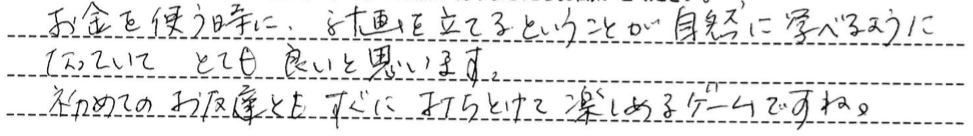 お金を使う時に、計画を立てるということが自然に学べるように
なっていて とても 良いと思います。
初めての お友達とも すぐに 打ちとけて 楽しめるゲームですね。